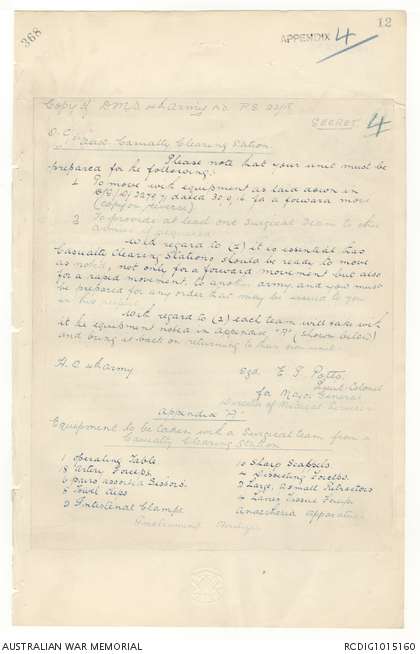 368
12
APPENDIX 4
Copy of D.M.S. 4th Army No. P.S. 22/8
SECRET 4
O.C. Aust Casualty Clearing Station.
Please note that your unit must be
prepared for the following:
1 To move with equipment as laid down in
dated 30.9.16 to a forward move
(copy on reverse)
2 To provide at least one Surgical Team to other
Armies if required.
With regard to (1) it is essential that
Casualty Clearing Stations should be ready to move
as noted, not only for a forward movement but also
for a rapid movement to another army, and you must
be prepared for any order that may be issued to you
in this respect.
With regard to (2) each team will take with
it the equipment noted in appendix "A" (shown below)
and bring it back on returning to their own unit.
H.Q. 4th Army
Sgd. E. T. Potts
Lieut-Colonel
for Major General
Director of Medical Services
Appendix 'A'
Equipment to be taken with a Surgical team from a
Casualty Clearing Station
1 Operating Table
18 Artery Forceps
6 pairs assorted Scissors
8 Towel Clips
2 Intestinal Clamps
10 Sharp Scalpels
4 Dissecting Forceps
2 Large, 2 small Retractors
4 Lanes Tissue Forceps
Anaesthesia Apparatus
AUSTRALIAN WAR MEMORIAL
RCDIG1015160